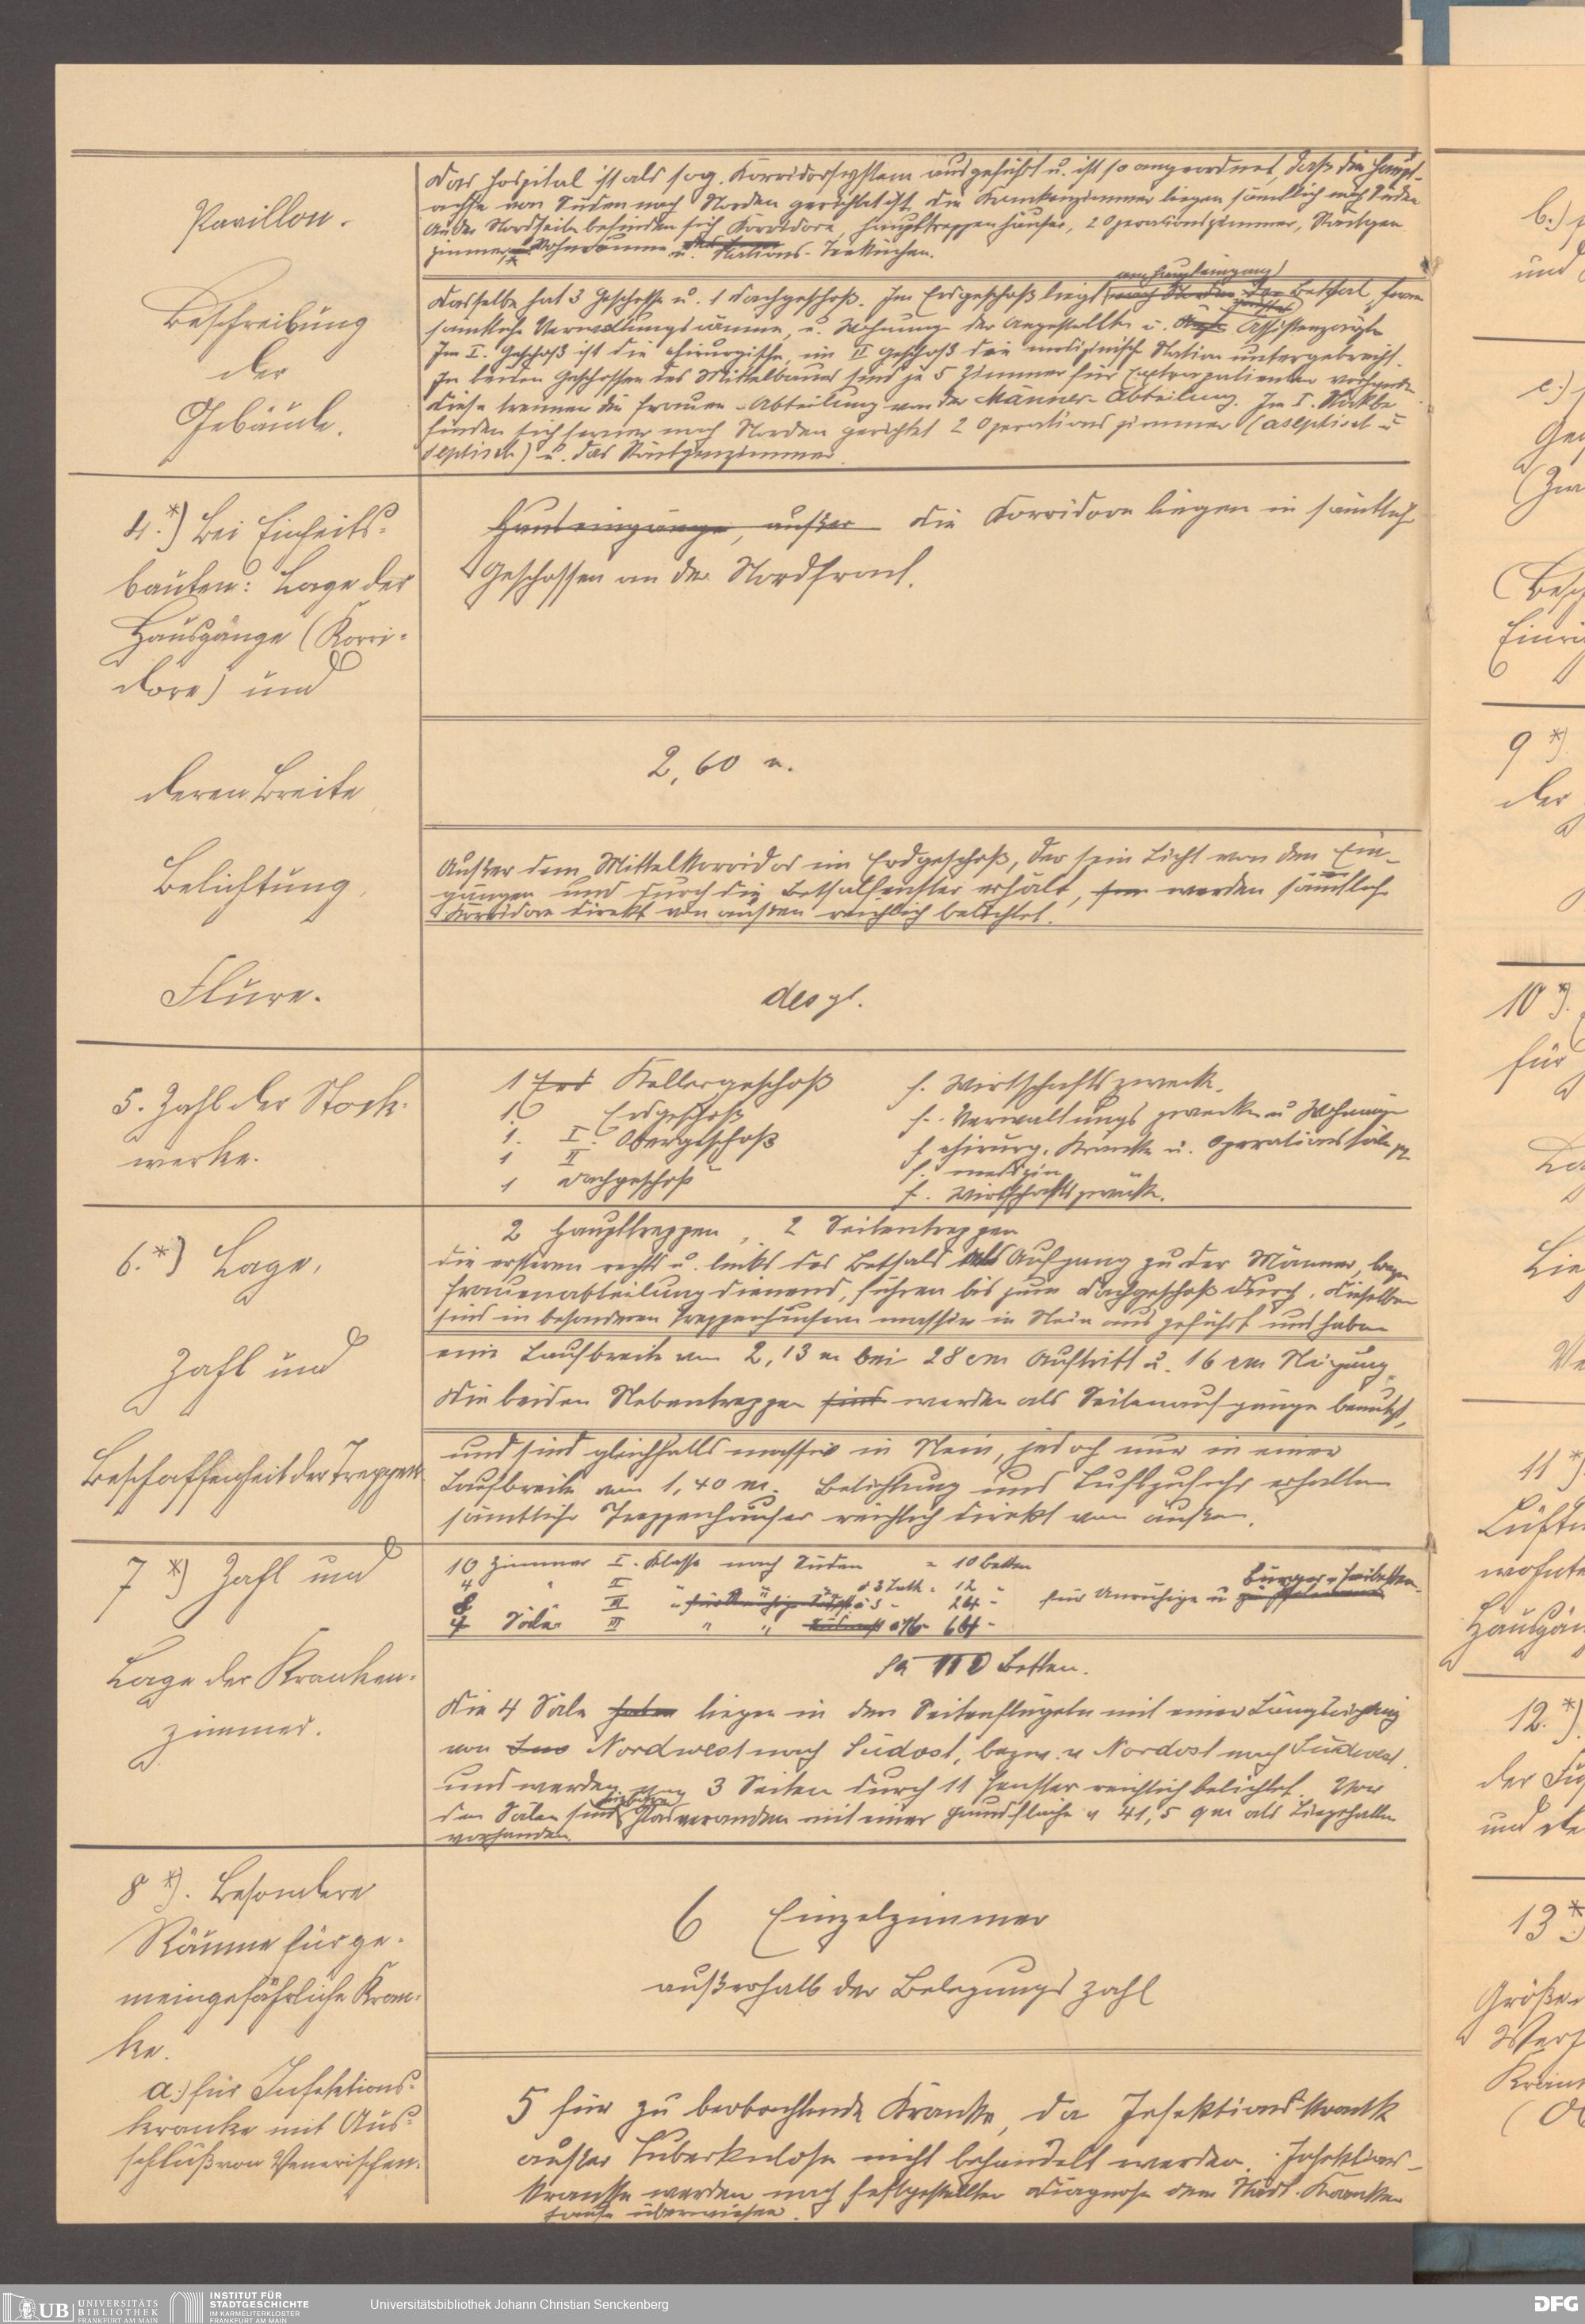 Pavillon.
Das Hospital ist als sog. Korridorsystem ausgeführt u. ist so angeordnet, daß die Haupt-
achse von Süden nach Norden gerichtet ist, die Krankenzimmer liegen sämtlich nach Süden
An der Nordseite befinden sich Korridore, Haupttreppenhäuser, 2 Operationszimmer, Röntgen
zimmer, Wohnräume u. Stations-Teeküchen.
Beschreibung
der
Gebäude.
am Haupteingang
Dasselbe hat 3 Geschosse u. 1 Dachgeschoß. Im Erdgeschoß liegt nach Norden der Betsaal, ferner
sämtliche Verwaltungsräume, u. Wohnung der Angestellten u. Assistenzärzte
Im I. Geschoß ist die chirurgische, im II Geschoß die medizinische Station untergebracht.
In beiden Geschossen des Mittelbaues sind je 5 Zimmer für Extrapatienten
Diese trennen die Frauen-Abteilung von der Männer-Abteilung. Im I. Stock be
finden sich ferner nach Norden gerichtet 2 Operationszimmer (aseptisch u
septisch) u. das Röntgenzimmer.
4.*) Bei Einheits-
bauten: Lage der
Hausgänge (Korri-
dore) und
Hauseingänge, außer die Korridore liegen in sämtlich
Geschossen an der Nordfront.
deren Breite
2,60 m.
Belichtung,
Außer dem Mittelkorridor im Erdgeschoß, der sein Licht von den Ein-
gängen und durch die Betsalfenster erhält, werden sämtliche
Korridore direkt von außen reichlich belichtet.
Flure.
desgl.
5. Zahl der Stock-
werke.
1 Erd Kellergeschoß f. Wirtschaftszwecke.
1. Erdgeschoß f. Verwaltungszwecke u Wohnung
1. I. Obergeschoß f chirurg. Kranke u. Operationssäle
1 II " f. medizin
1 Dachgeschoß f. Wirtschaftszwecke.
6.*) Lage,
Zahl und
Beschaffenheit der Treppen
2 Haupttreppen, 2 Seitentreppen
die ersteren rechts u. links des Betsals als Aufgang zu der Männer, bezw
Frauenabteilung dienend, führen bis zum Dachgeschoß durch. Dieselben
sind in besonderen Treppenhäusern massiv in Stein ausgeführt und haben
eine Laufbreite von 2,13 m bei 28 cm Auftritt u. 16 cm Steigung.
Die beiden Nebentreppen sind werden als Seitenaufgänge benutzt,
und sind gleichfalls massiv in Stein, jedoch nur in einer
Laufbreite von 1,40 m. Belichtung und Luftzufuhr erhalten
sämtliche Treppenhäuser reichlich direkt von außen.
7 *) Zahl und
Lage der Kranken-
zimmer.
10 Zimmer I. Klasse nach Süden = 10 Betten
4 " II " " 12 "
8 " III " à 3 " 24 " für Unruhige u Bürger-Freibetten.
4 Säle III " " à 16 64 "
Sa 110 Betten.
Die 4 Säle haben liegen in den Seitenflügeln mit einer Längsrichtung
von Nordwest nach Südost, bezw. u Nordost nach Südwest.
und werden von 3 Seiten durch 11 Fenster reichlich belichtet. Vor
den Sälen sind Glasveranden mit einer Grundfläche v 41,5 qm als Liegehallen
vorhanden.
8 *). Besondere
Räume für ge-
meingefährliche Kran-
ke.
6 Einzelzimmer
außerhalb der Belegungszahl
a.) für Infektions-
kranke mit Aus-
schluß von Venerischen.
5 für zu beobachtende Kranke, da Infektionskrank
außer Tuberkulose nicht behandelt werden. Infektions-
kranke werden nach festgestellter Diagnose dem Städt. Kranken
hause überwiesen.
UB UNIVERSITÄTS
BIBLIOTHEK
FRANKFURT AM MAIN
INSTITUT FÜR
STADTGESCHICHTE
IM KARMELITERKLOSTER
FRANKFURT AM MAIN
Universitätsbibliothek Johann Christian Senckenberg
DFG